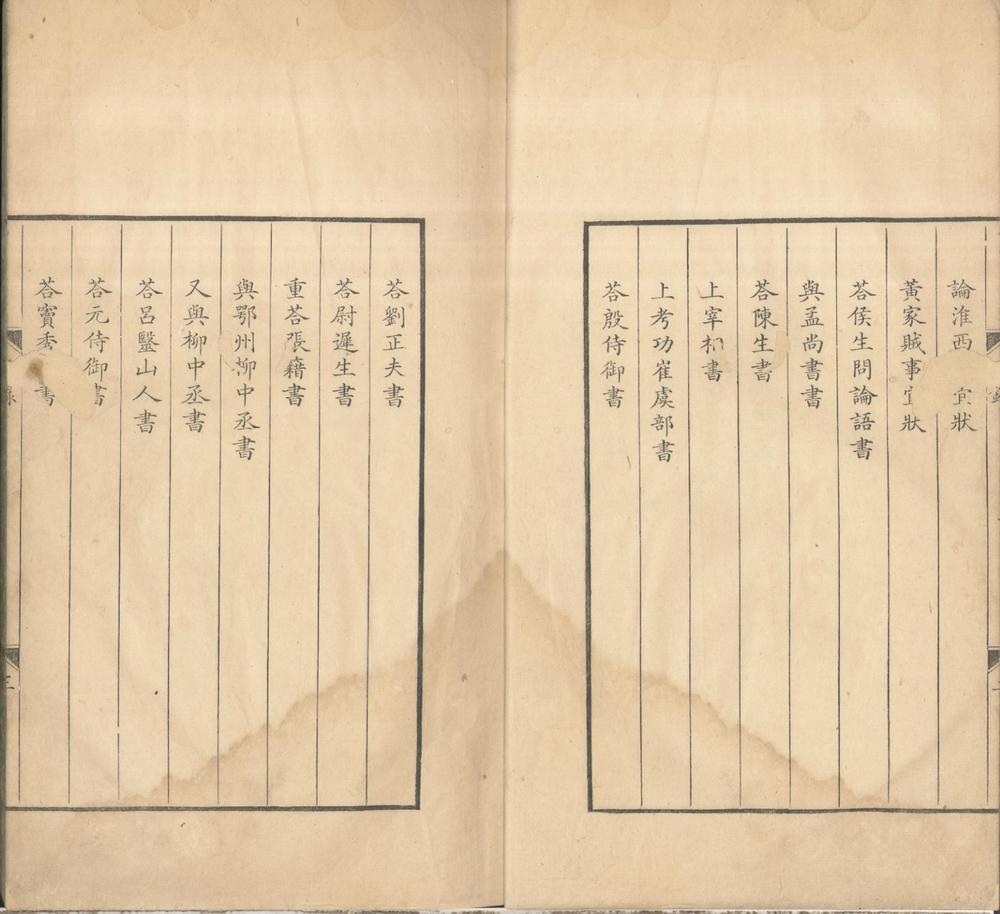 論淮西宜狀
黃家賊事宜狀
荅侯生問論語書
與孟尚書書
荅陳生書
上宰相書
上考功崔虞部書
荅殷侍御書
荅劉正夫書
荅尉遲生書
重荅張籍書
與鄂州柳中丞書
又與柳中丞書
荅呂毉山人書
荅元侍御書
荅竇秀書